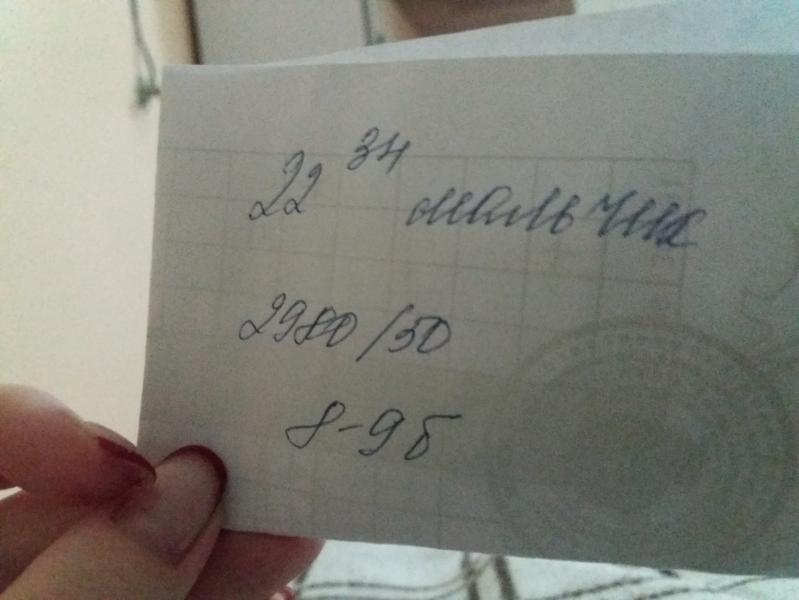 22 34 мальчик
2980/50
8-9б